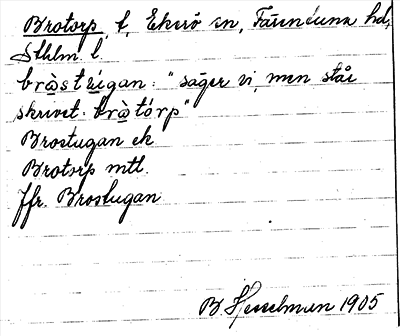 Brotorp, t, Ekerö sn, Färentuna hd,
Sthlm l.
bròstúgan: "säger vi, men står
skrivet: bròtórp"
Brostugan ek
Brotorp mtl.
Jfr. Brostugan
B Hesselman 1905